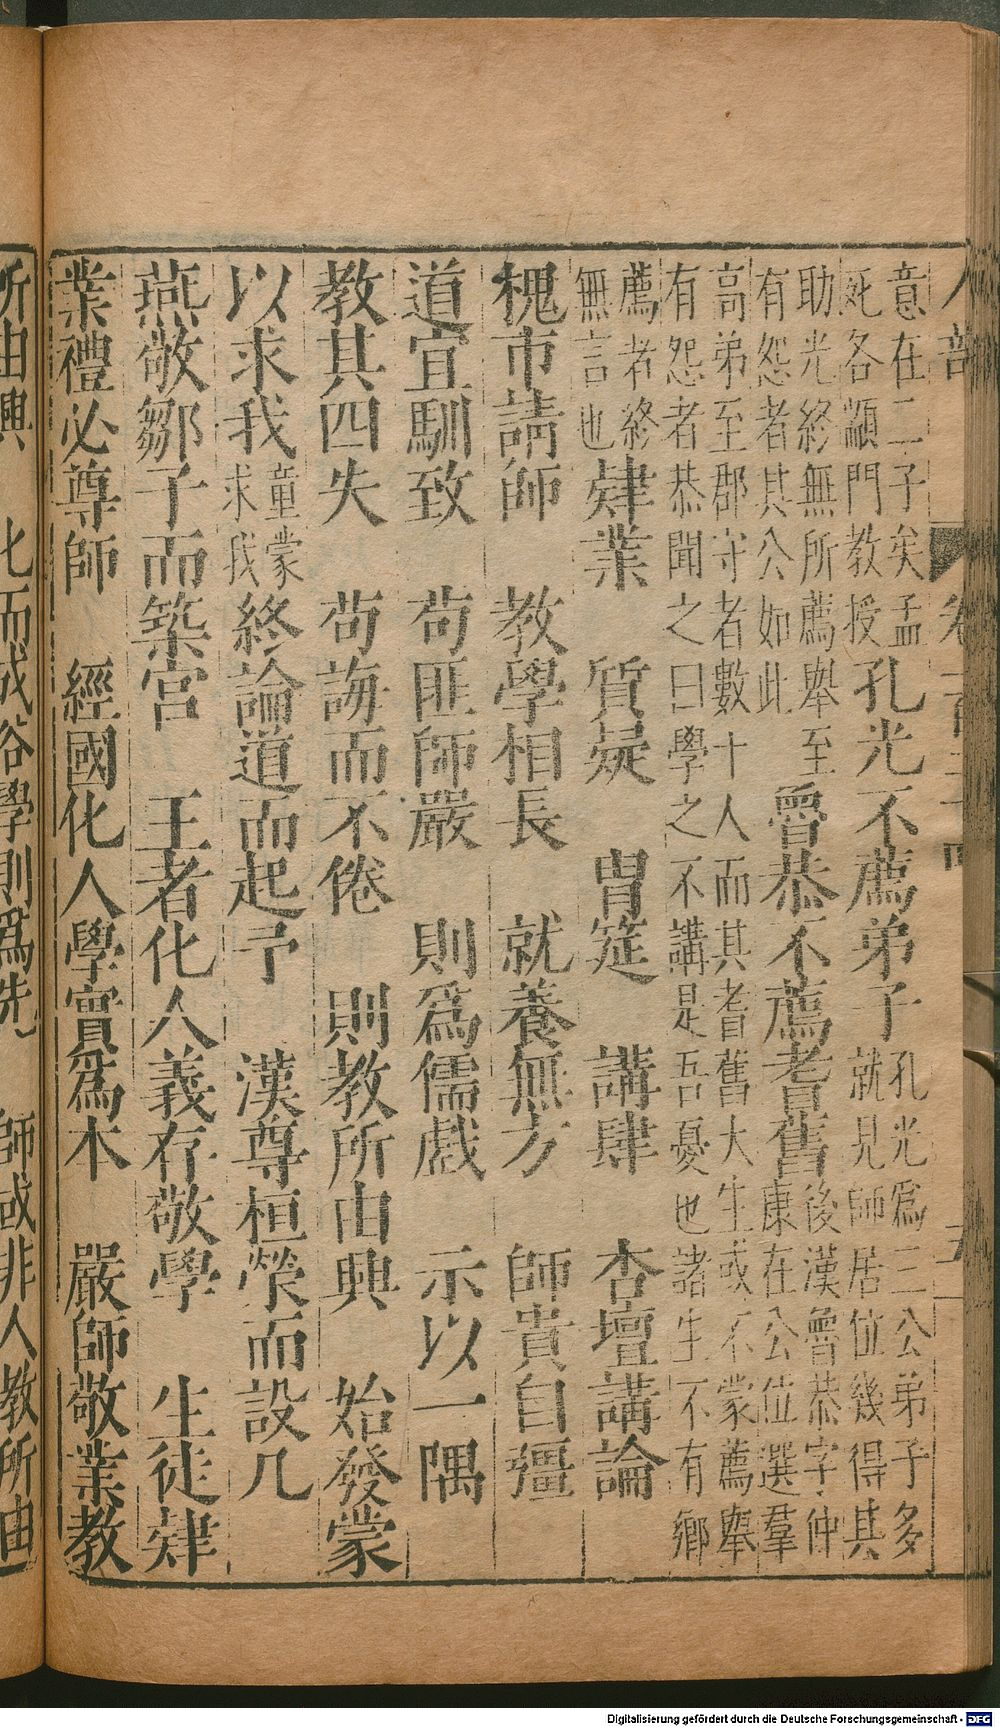 人部 卷二百三十四
意在二子矣孟
死各顓門教授孔光不薦弟子孔光爲三公弟子多
就見師居位幾得其
助光終無所薦舉至
有怨者其公如此魯恭不薦耆舊後漢魯恭字仲
康在公位選羣
高弟至郡守者數十人而其耆舊大生或不蒙薦舉
有怨者恭聞之曰學之不講是吾憂也諸生不有鄉
薦者終
無言也肄業 質疑 胄筵 講肆 杏壇講論
槐市請師 教學相長 就養無方 師貴自彊
道宜馴致 苟匪師嚴 則爲儒戲 示以一隅
教其四失 苟誨而不倦 則教所由興 始發蒙
以求我童蒙
求我終論道而起予 漢尊桓榮而設几
燕敬鄒子而築宮 王者化人義存敬學 生徒肄
業禮必尊師 經國化人學實爲本 嚴師敬業教
所由興 化而成俗學則爲先 師或非人教所由
Digitalisierung gefördert durch die Deutsche Forschungsgemeinschaft - DFG